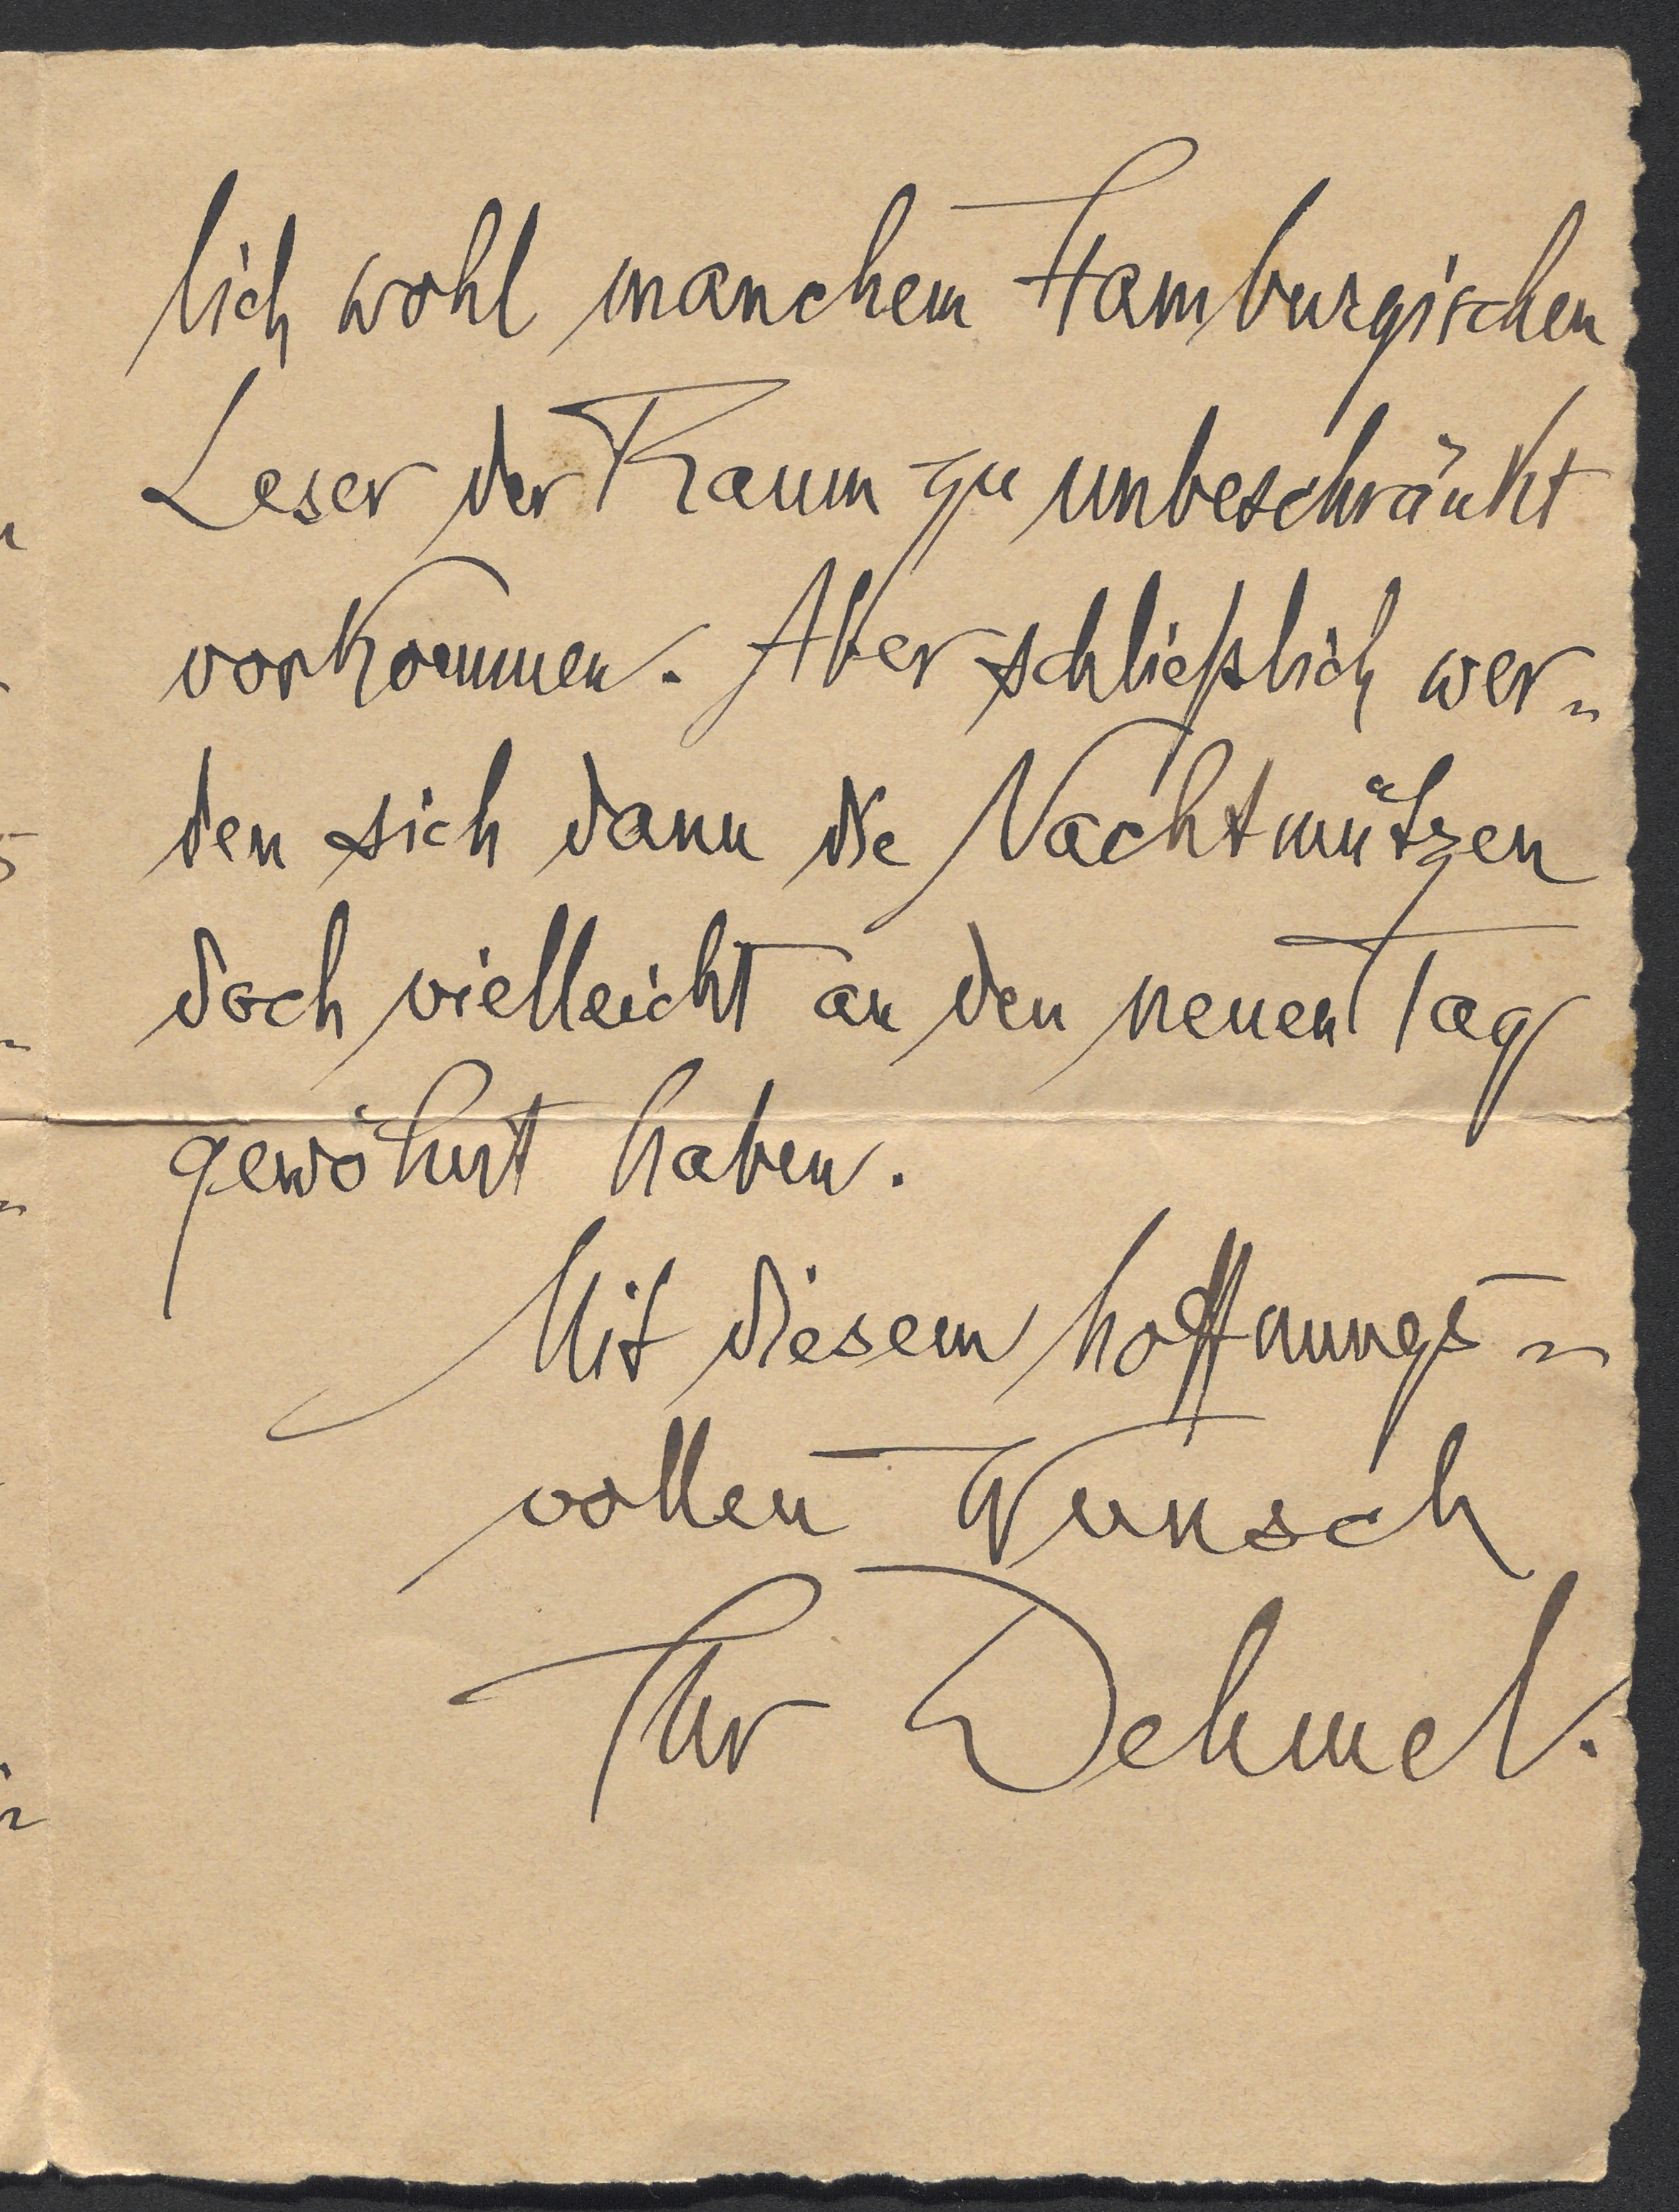 lich wohl manchem Hamburgischen
Leser der Raum zu unbeschränkt
vorkommen. Aber schließlich wer-
den sich dann die Nachtmützen
doch vielleicht an den neuen Tag
gewöhnt haben.
Mit diesem hoffnungs-
vollen Wunsch
Ihr Dehmel.